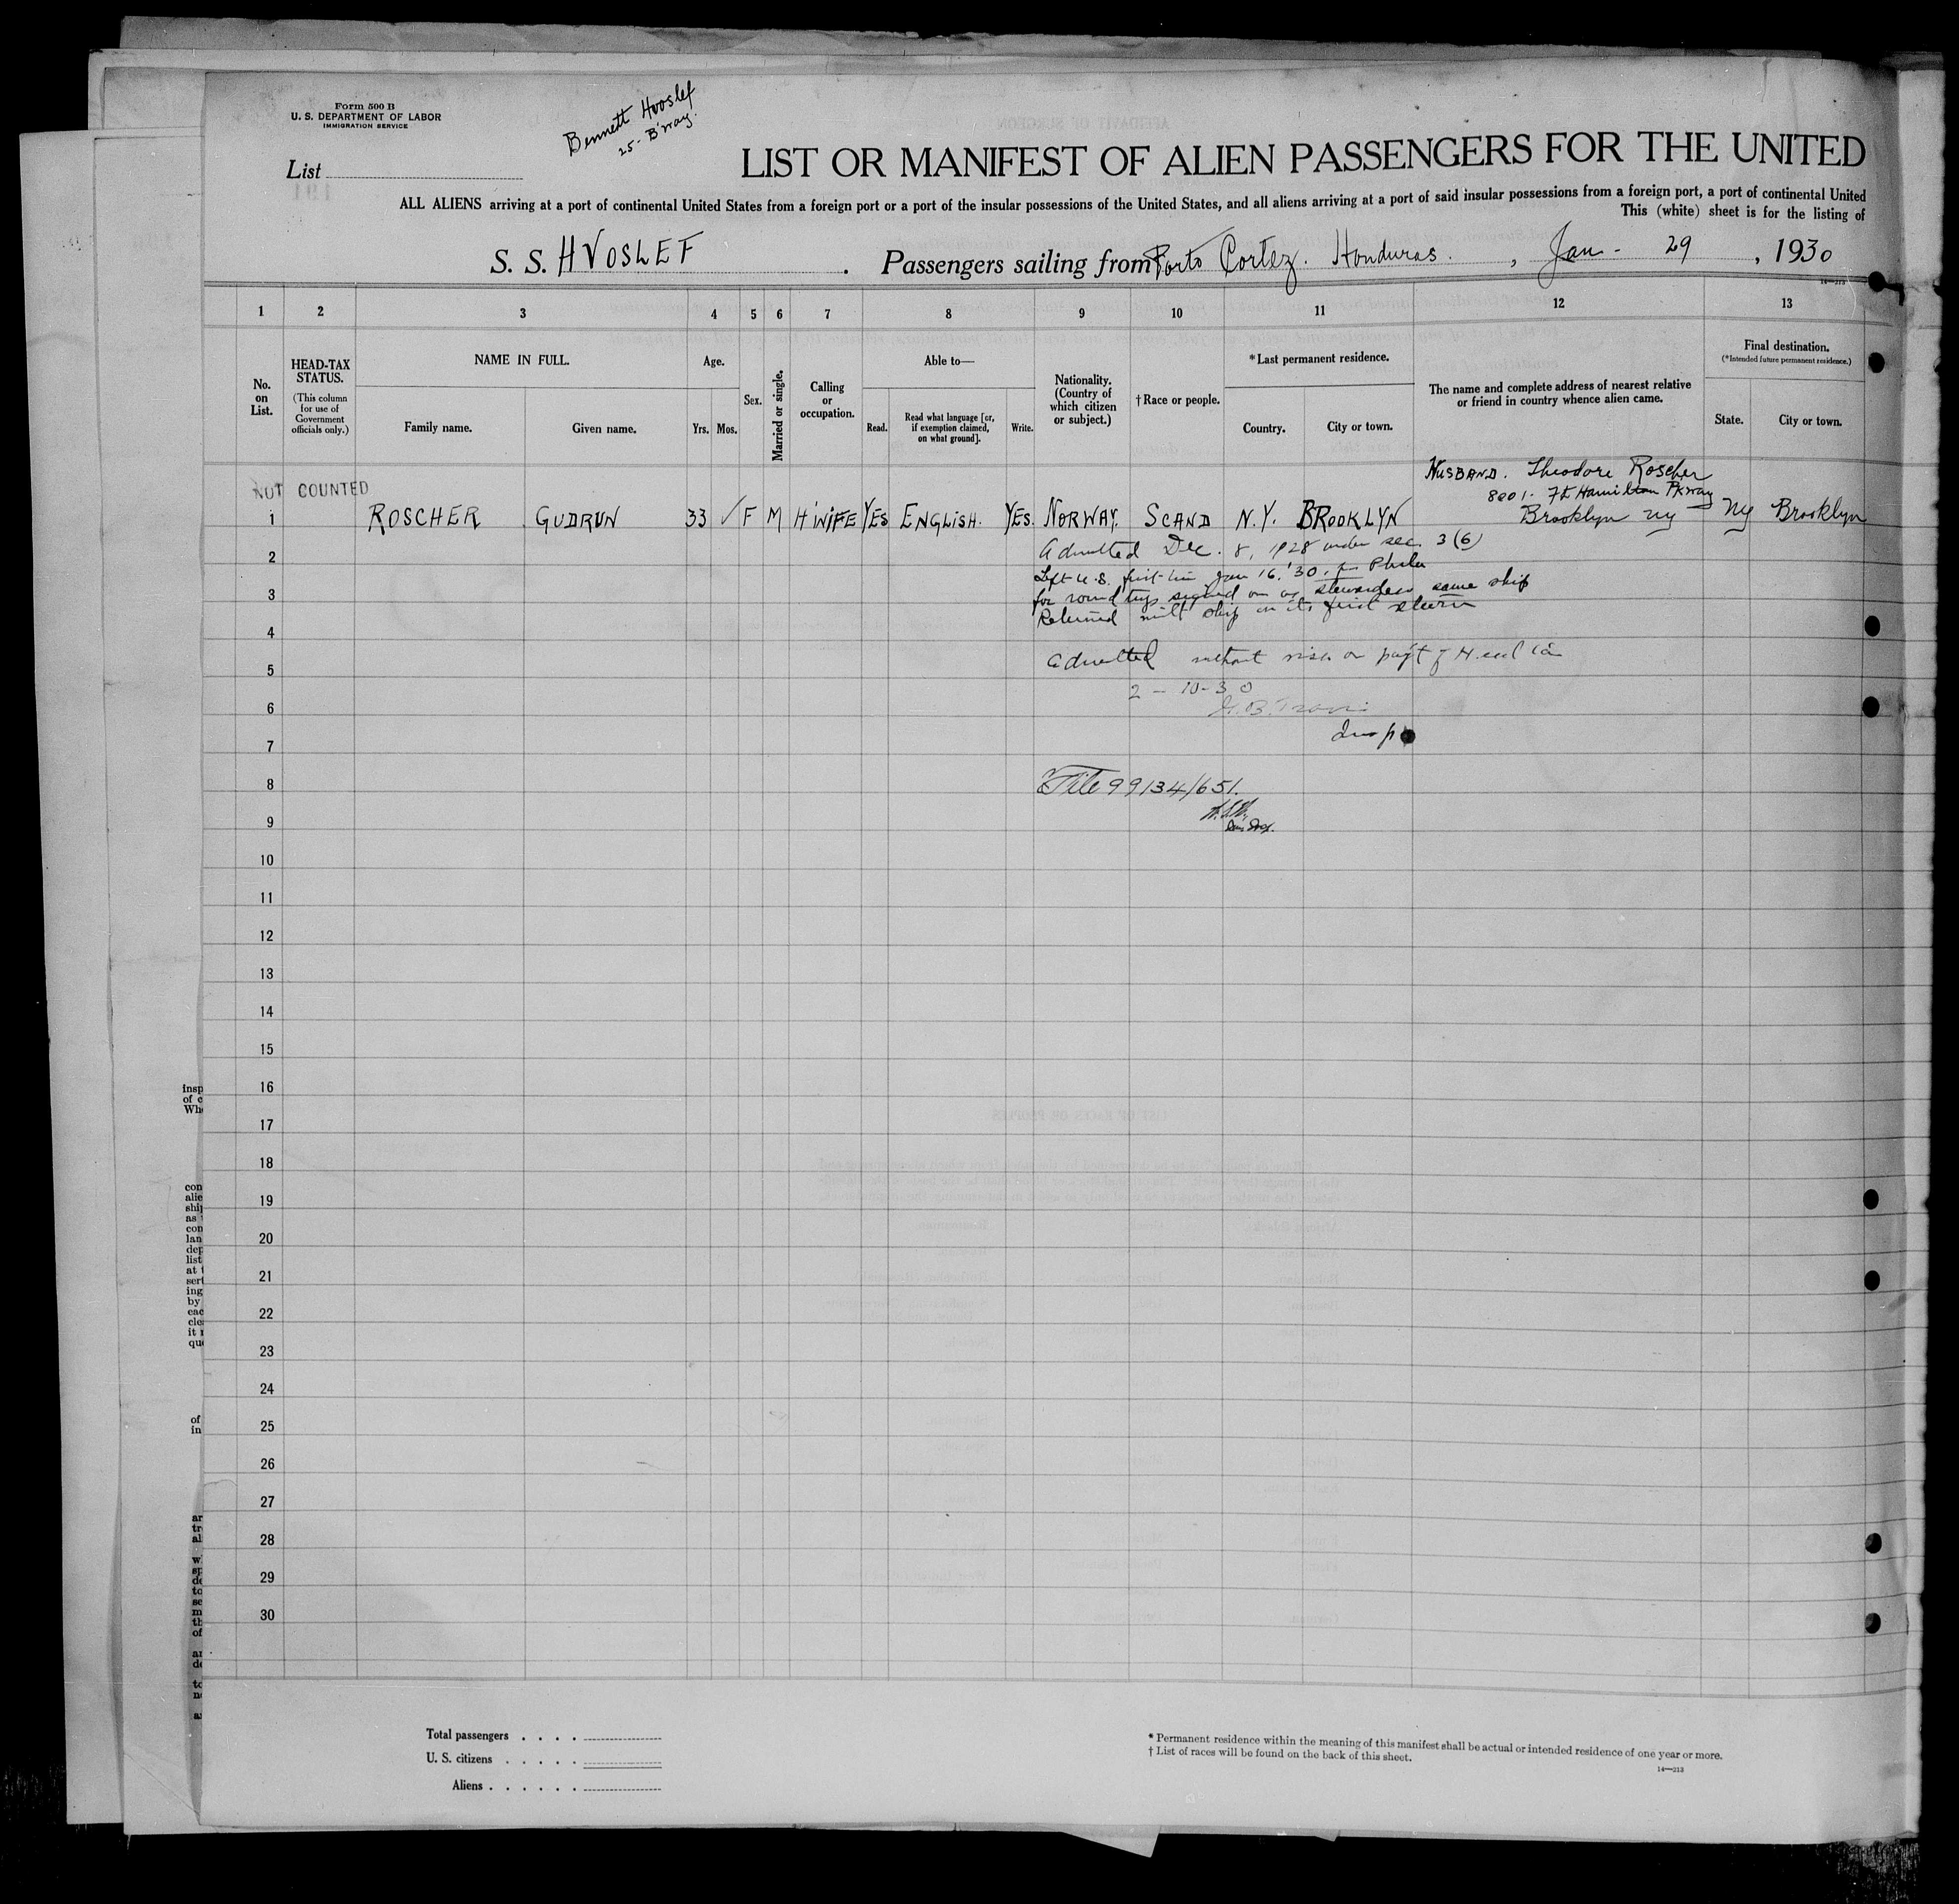 Form 500 B
U. S. DEPARTMENT OF LABOR
IMMIGRATION SERVICE
Bennett Hvoslef
25- B'way.
List
LIST OR MANIFEST OF ALIEN PASSENGERS FOR THE UNITED
ALL ALIENS arriving at a port of continental United States from a foreign port or a port of the insular possessions of the United States, and all aliens arriving at a port of said insular possessions from a foreign port, a port of continental United
This (white) sheet is for the listing of
S. S. HVOSLEF . Passengers sailing from Porto Cortez. Honduras. , Jan - 29 , 1930
14—213
1 2 3 4 5 6 7 8 9 10 11 12 13
No. on List.
HEAD-TAX STATUS.
(This column for use of Government officials only.)
NAME IN FULL.
Family name. Given name.
Age.
Yrs. Mos.
Sex.
Married or single.
Calling or occupation.
Able to—
Read. Read what language [or, if exemption claimed, on what ground]. Write.
Nationality. (Country of which citizen or subject.)
† Race or people.
* Last permanent residence.
Country. City or town.
The name and complete address of nearest relative or friend in country whence alien came.
Final destination.
(* Intended future permanent residence.)
State. City or town.
NOT COUNTED
HUSBAND. Theodore Roscher
8801- 7th Hamilton Pkway
Brooklyn NY
1 ROSCHER GUDRUN 33 ✓ F M H'WIFE YES ENGLISH. YES. NORWAY. SCAND N.Y. BROOKLYN NY Brooklyn
Admitted Dec. 8, 1928 under sec. 3(6)
2
Left U.S. first time Jan 16. '30. Phila
3
for round trip signed on as stewardess same ship
Returned with ship on its first return
4
Admitted without visa or paym't of Head tax
5
2 - 10 - 30
6
Insp
7
8
File 99134/651.
9
10
11
12
13
14
15
16
17
18
19
20
21
22
23
24
25
26
27
28
29
30
Total passengers . . . .
U. S. citizens . . . . .
Aliens . . . . . .
* Permanent residence within the meaning of this manifest shall be actual or intended residence of one year or more.
† List of races will be found on the back of this sheet.
14—213